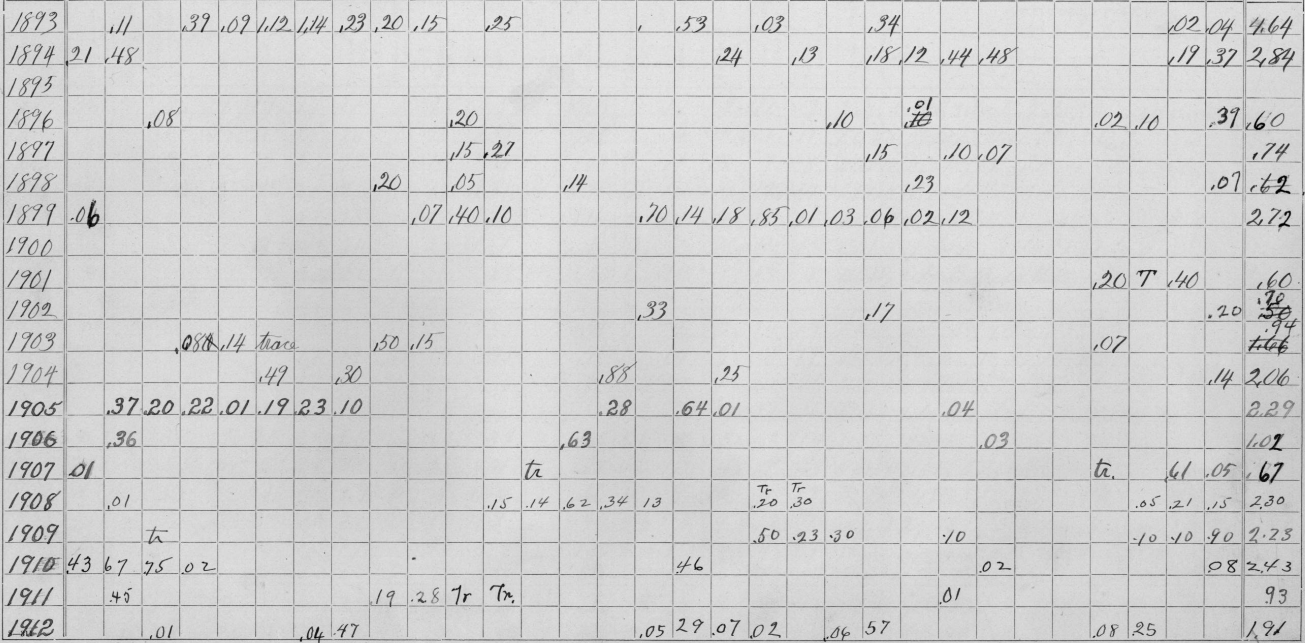 1893 .11 .39 .09 1.12 1.14 .23 .20 .15 .25 .53 .03 .34 .02 .04 4.64
1894 .21 .48 .24 .13 .18 .12 .44 .48 .19 .37 2.84
1895
1896 .08 .20 .10 .01 .02 .10 .39 .60
1897 .15 .27 .15 .10 .07 .74
1898 .20 .05 .14 .23 .07 .62
1899 .06 .07 .40 .10 .70 .14 .18 .85 .01 .03 .06 .02 .12 2.72
1900
1901 .20 T .40 .60
1902 .33 .17 .20 .70 .50
1903 .08 .14 trace .50 .15 .07 .94
1904 .49 .30 .88 .25 .14 2.06
1905 .37 .20 .22 .01 .19 .23 .10 .28 .64 .01 .04 2.29
1906 .36 .63 .03 1.02
1907 .01 tr tr. .61 .05 .67
1908 .01 .15 .14 .62 .34 13 Tr .20 Tr .30 .05 .21 .15 2.30
1909 tr .50 .23 .30 .10 .10 .10 .90 2.23
1910 .43 67 75 .02 .46 .02 .08 2.43
1911 .45 .19 .28 Tr Tr. .01 .93
1912 .01 .04 .47 .05 29 .07 .02 .06 57 .08 25 1.91